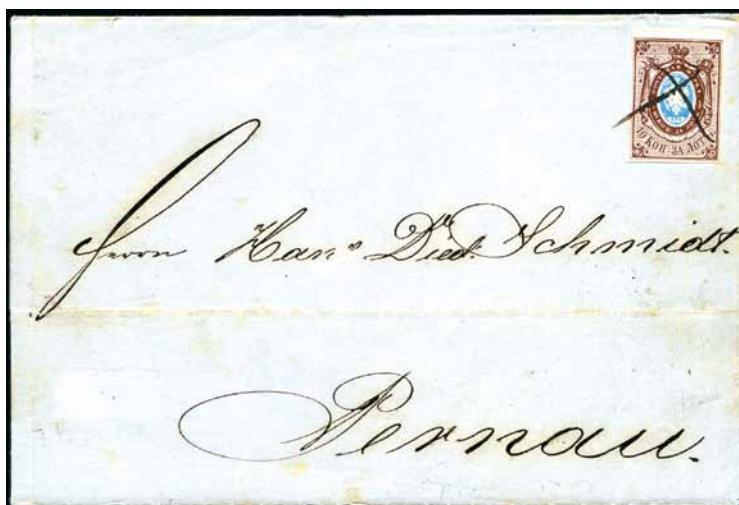 10 КОП. ЗА ЛОТЪ
Herrn Hans Died. Schmidt.
Pernau.